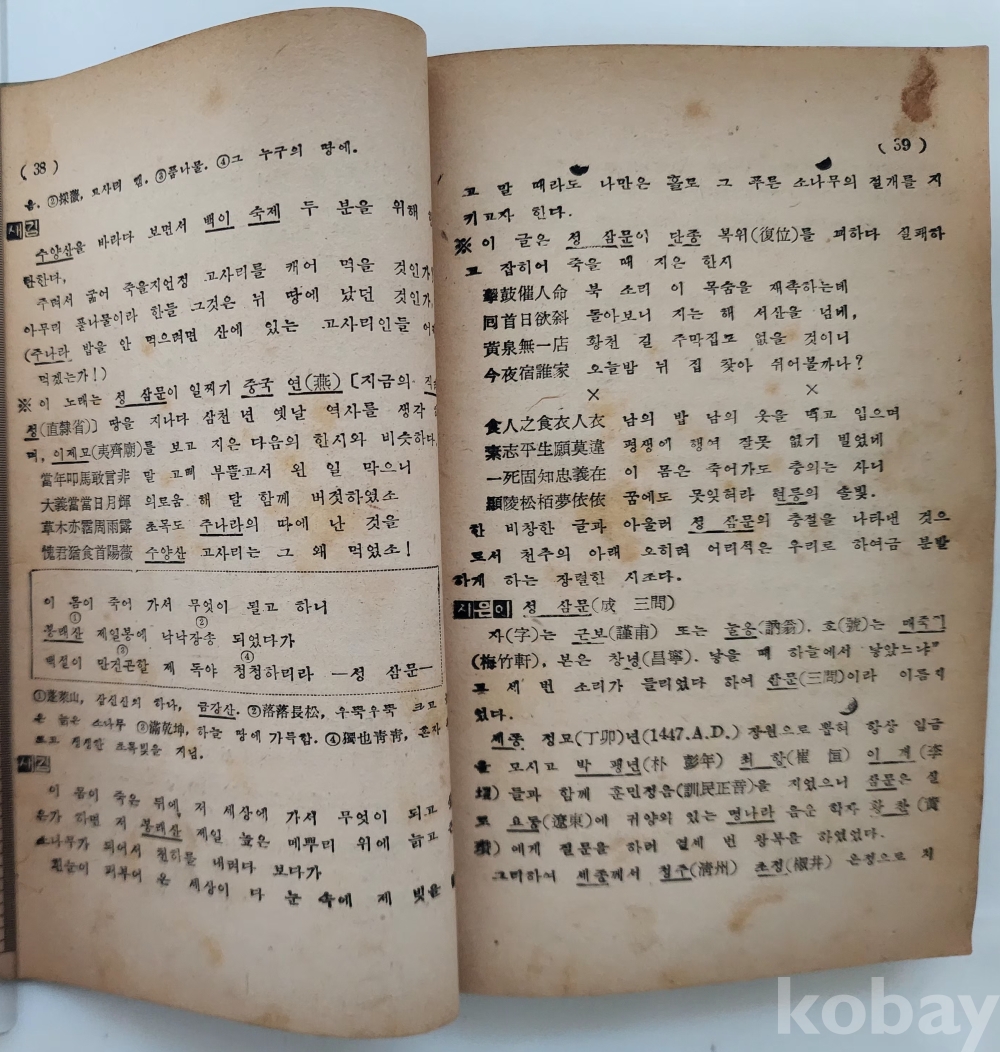 ( 38 )
음. ②採薇, 고사리 캠. ③푿나물. ④그 누구의 땅에.
새김
수양산을 바라다 보면서 백이 숙제 두 분을 위해
탄한다,
주려서 굶어 죽을지언정 고사리를 캐어 먹을 것인가
아무리 푿나물이라 한들 그것은 뉘 땅에 났던 것인가,
(주나라 밥을 안 먹으려면 산에 있는 고사리인들
먹겠는가!)
※ 이 노래는 성 삼문이 일찌기 중국 연(燕) [지금의
성(直隷省)] 땅을 지나다 삼천 년 옛날 역사를 생각
며, 이제묘(夷齊廟)를 보고 지은 다음의 한시와 비슷하다.
當年叩馬敢言非 말 고삐 부뜰고서 왼 일 막으니
大義當當日月輝 의로움 해 달 함께 버젓하였소
草木亦霑周雨露 초목도 주나라의 따에 난 것을
愧君猶食首陽薇 수양산 고사리는 그 왜 먹었소!
이 몸이 죽어 가서 무엇이 될고 하니
① ②
봉래산 제일봉에 낙락장송 되었다가
③ ④
백설이 만건곤할 제 독야 청청하리라 —성 삼문—
①蓬萊山, 삼신산의 하나, 금강산. ②落落長松, 우뚝우뚝 크고
은 늙은 소나무 ③滿乾坤, 하늘 땅에 가득함. ④獨也靑靑, 혼자
로고 정정한 초록빛을 지님.
새김
이 몸이 죽은 뒤에 저 세상에 가서 무엇이 되고
은가 하면 저 봉래산 제일 높은 메뿌리 위에 늙고
소나무가 되어서 천하를 내려다 보다가
흰눈이 퍼부어 온 세상이 다 눈 속에 제 빛을
( 39 )
고 말 때라도 나만은 홀로 그 푸른 소나무의 절개를 지
키고자 한다.
※ 이 글은 성 삼문이 단종 복위(復位)를 꾀하다 실패하
고 잡히어 죽을 때 지은 한시
擊鼓催人命 북 소리 이 목숨을 재촉하는데
回首日欲斜 돌아보니 지는 해 서산을 넘네,
黃泉無一店 황천 길 주막집도 없을 것이니
今夜宿誰家 오늘밤 뉘 집 찾아 쉬어볼까나?
× ×
食人之食衣人衣 남의 밥 남의 옷을 먹고 입으며
素志平生願莫違 평생에 행여 잘못 없기 빌었네
一死固知忠義在 이 몸은 죽어가도 충의는 사니
顯陵松栢夢依依 꿈에도 못잊혀라 현릉의 솔빛.
한 비창한 글과 아울러 성 삼문의 충절을 나타낸 것으
로서 천주의 아래 오히려 어리석은 우리로 하여금 분발
하게 하는 장렬한 시조다.
지은이 성 삼문(成 三問)
자(字)는 근보(謹甫) 또는 눌옹(訥翁). 호(號)는 매죽헌
(梅竹軒), 본은 창녕(昌寧). 낳을 때 하늘에서 낳았느냐”
고 세 번 소리가 들리었다 하여 삼문(三問)이라 이름지
었다.
세종 정묘(丁卯)년(1447.A.D.) 장원으로 뽑혀 항상 임금
을 모시고 박 팽년(朴 彭年) 최 항(崔 恒) 이 개(李
塏) 들과 함께 훈민정음(訓民正音)을 지었으니 삼문은
로 요동(遼東)에 귀양와 있는 명나라 음운 학자 황 찬(黃
瓚) 에게 질문을 하러 열세 번 왕복을 하였었다.
그리하여 세종께서 청주(淸州) 초정(椒井) 온정으로 치
kobay